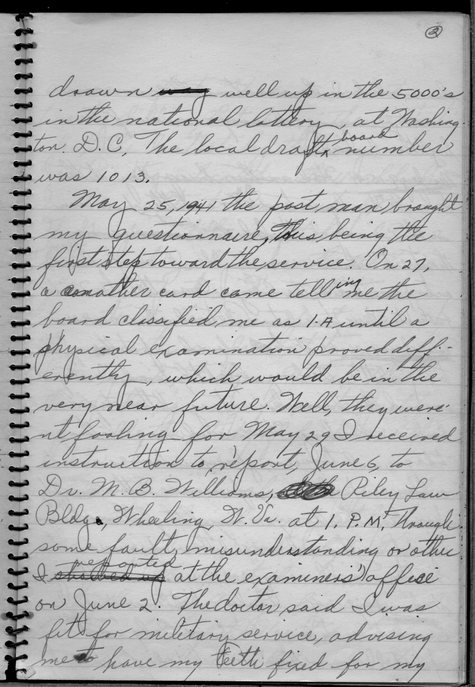 2
drawn way well up in the 5000's
in the national lottery, at Washing-
ton, D.C. The local draft board number
was 1013.
May 25, 1941 the post man brought
my questionnaire, this being the
first step toward the service. On 27,
a another card came telling me the
board classified me as 1-A until a
physical examination proved diff-
erently, which would be in the
very near future. Well, they were-
nt fooling for May 29 I received
instruction to report, June 6, to
Dr. M. B. Williams, Riley Law
Bldg., Wheeling, W. Va. at 1, P.M. Through
some fault, misunderstanding or other
I showed up reported at the examiners' office
on June 2. The doctor said I was
fit for military service, advising
me to have my teeth fixed for my